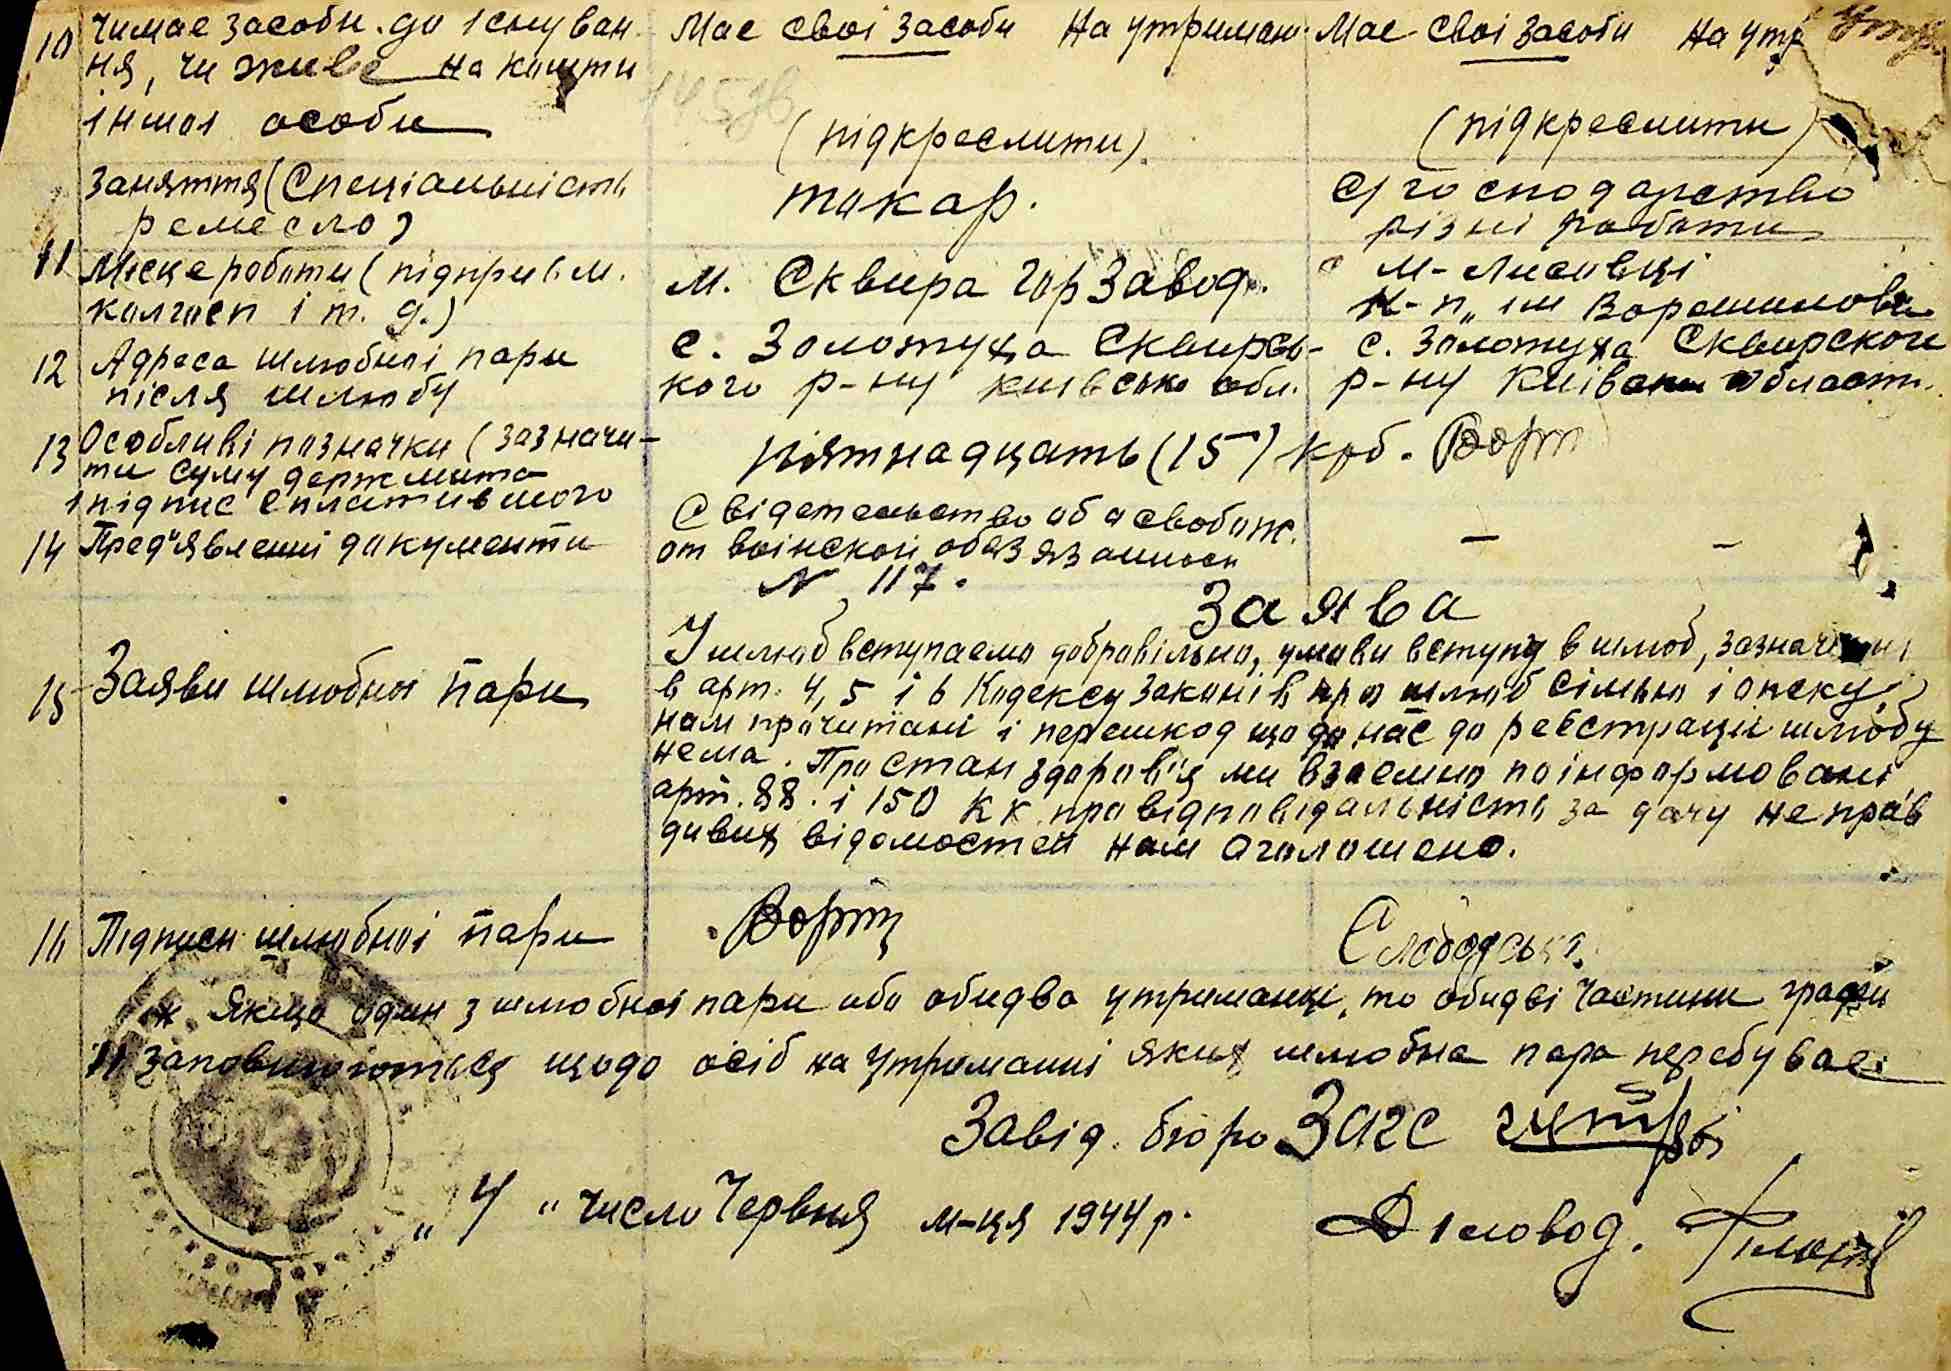 10 Чи має засоби до існуван
ня, чи живе на кошти
іншої особи
Має свої засоби На утриман.
(підкреслити)
Має свої засоби На утр
(підкреслити)
Заняття (Спеціальність
ремесло)
токар.
с/господарство
різні роботи
11 Місце роботи (підприєм.
колгосп і т. д.)
м. Сквира Гор Завод.
с. м-Лисовці
к-п „ім Ворошилова
12 Адреса шлюбної пари
після шлюбу
с. Золотуха Сквирсь-
кого р-ну київсько обл.
с. Золотуха Сквирскои
р-ну Київськи области.
13 Особливі позначки (зазначи-
ти суму держмита
і підпис сплатившого
пятнадцать (15) крб.
14 Пред'явленні документи
Свідетельство об освобож.
от воінской обязяаность
N 117.
— —
Заява
15 Заяви шлюбної пари
У шлюб вступаемо добровільно, умови вступу в шлюб, зазначені
в арт. 4, 5 і 6 Кодексу Законів про шлюб сімью і опеку,
нам прочитані і перешкод що до нас до реєстрації шлюбу
нема. Про стан здоров'я ми взаємно поінформовані
арт. 88. і 150 КК про відповідальність за дачу неправ
дивих відомостей нам оголошено.
16 Підписи шлюбної пари
* Якщо один з шлюбної пари або обидва утриманці, то обидві частини графи
11 заповнюються щодо осіб на утриманні яких шлюбна пара перебуває
Завід. бюро Загс
„4" число Червня м-ця 1944 р.
Діловод.